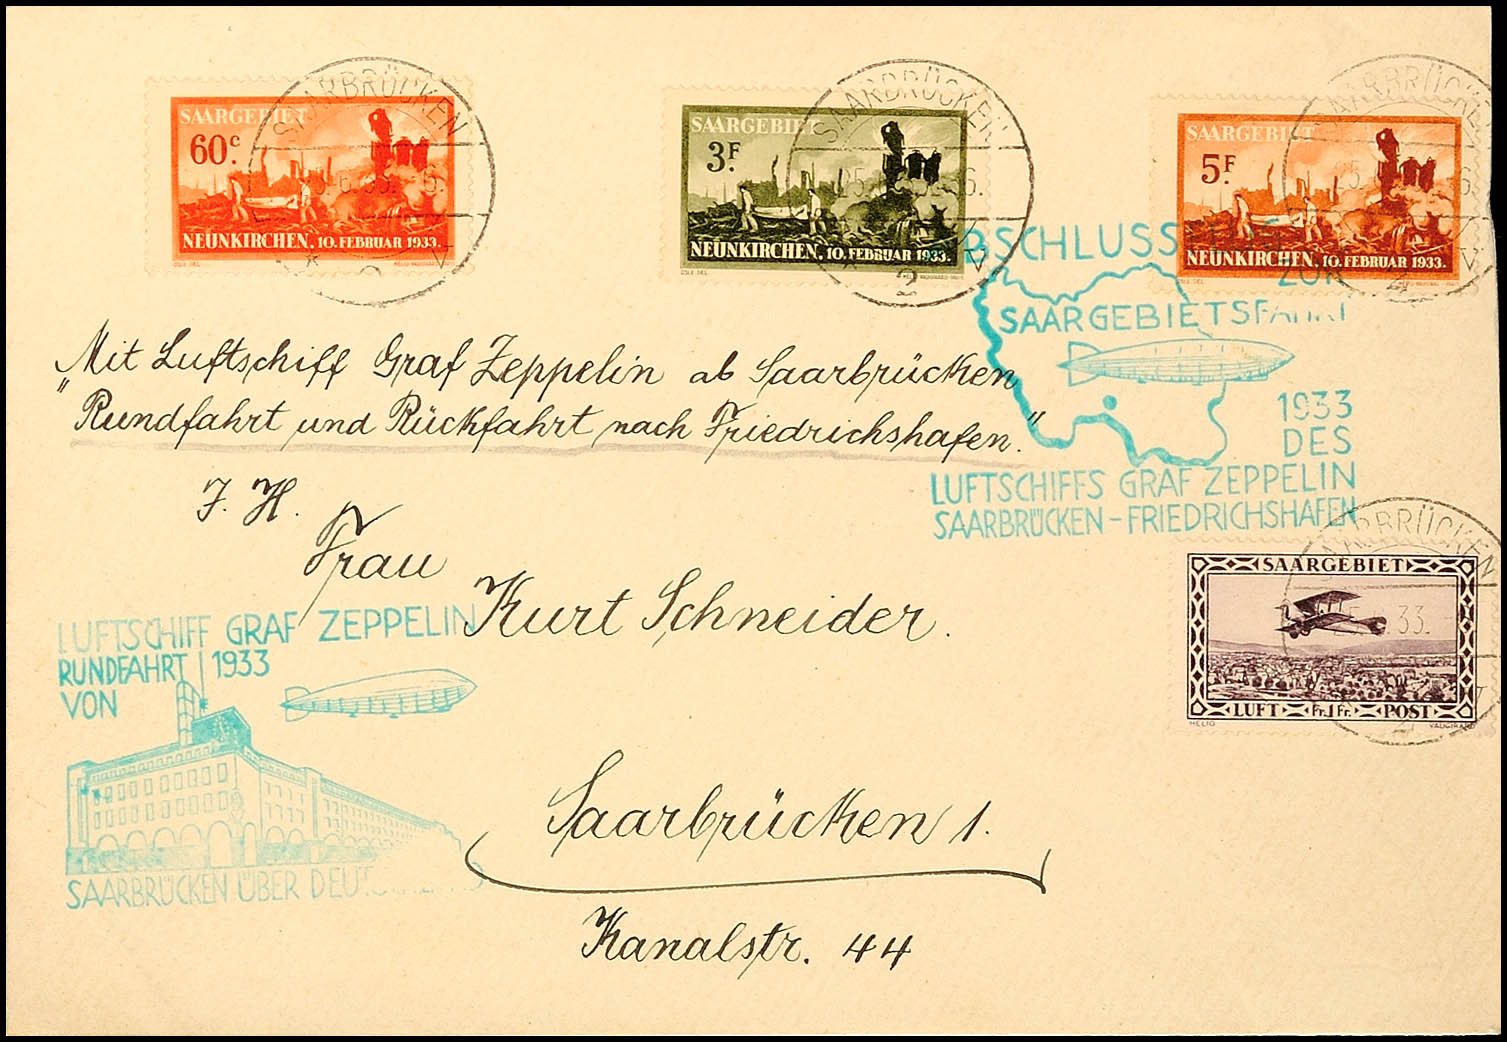 SAARGEBIET
60c.
NEUNKIRCHEN, 10. FEBRUAR 1933.
SAARBRÜCKEN
SAARGEBIET
3 F.
NEUNKIRCHEN, 10. FEBRUAR 1933.
SAARBRÜCKEN
2
SAARGEBIET
5 F.
NEUNKIRCHEN, 10. FEBRUAR 1933.
SAARBRÜCKEN
ZUR
SAARGEBIETSFAHRT
1933
DES
LUFTSCHIFFS GRAF ZEPPELIN
SAARBRÜCKEN – FRIEDRICHSHAFEN
Mit Luftschiff Graf Zeppelin ab Saarbrücken
"Rundfahrt und Rückfahrt nach Friedrichshafen."
F. H.
Frau
Kurt Schneider.
Saarbrücken 1.
Kanalstr. 44
LUFTSCHIFF GRAF ZEPPELIN
RUNDFAHRT 1933
VON
SAARBRÜCKEN ÜBER
SAARBRÜCKEN
SAARGEBIET
33.
LUFT Fr. 1 Fr. POST
HELIO VAUGIRARD